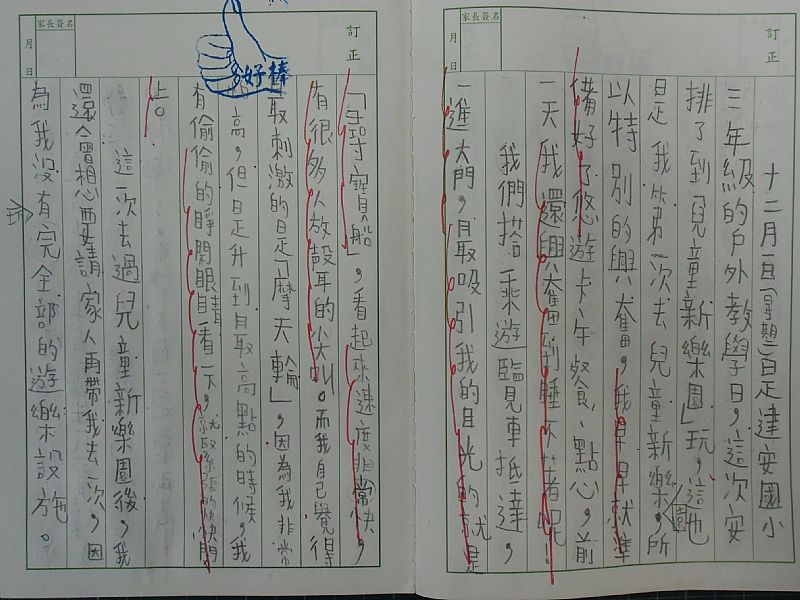 家長簽名
訂正
月 日
十二月一日(星期二)是達安國小
三年級的戶外教學日，這次安
排了到「兒童新樂園」玩，這也
是我第一次去兒童新樂，所
園
以特別的興奮，我早早就準
備好了悠遊卡、午餐、點心，前
一天我還興奮到睡不著呢！
我們搭乘遊覽車抵達，
一進大門，最吸引我的目光的就是
家長簽名
訂正
月 日
好棒
「尋寶船」，看起來速度非常快，
有很多人放聲的尖叫。而我自己覺得
取刺激的是「摩天輪」，因為我非常
高，但是升到最高點的時候，我
有偷偷的睜開眼睛看一下，就緊張的快閉
上。
這一次去過兒童新樂園後，我
還會想要請家人再帶我去一次，因
為我沒有完全部的遊樂設施。
玩